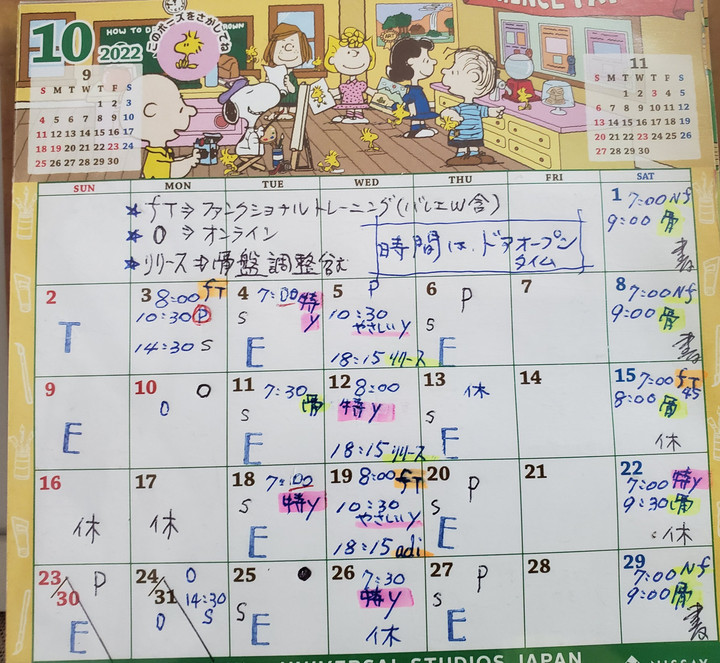 10 2022
このポーズをさがしてね
9
S M T W T F S
1 2 3
4 5 6 7 8 9 10
11 12 13 14 15 16 17
18 19 20 21 22 23 24
25 26 27 28 29 30
11
S M T W T F S
1 2 3 4 5
6 7 8 9 10 11 12
13 14 15 16 17 18 19
20 21 22 23 24 25 26
27 28 29 30
SUN MON TUE WED THU FRI SAT
★ fT⇒ファンクショナルトレーニング(バレエW含)
★ O⇒オンライン
★リリース⇒骨盤調整含む
時間は、ドアオープン
タイム
1 7:00 Nf
9:00 骨
書
2
T
3 8:00 fT
10:30 P
14:30 S
4 7:00 特y
S
E
5 P
10:30
やさしいy
18:15 リリース
6 P
S
E
7
8 7:00 Nf
9:00 骨
書
9
E
10 O
O
11 7:30
骨
S
E
12 8:00
特y
18:15 リリース
13 休
S
E
14
15 7:00 fT
45
8:00 骨
休
16
休
17
休
18 7:00
特y
S
E
19 8:00 fT
10:30
やさしいy
18:15 adi
20 P
S
E
21
22 7:00 特y
9:30 骨
休
23/30 P
E
24/31 O
14:30
O S
25
S
E
26 7:30
特y
休
27 P
S
E
28
29 7:00 Nf
9:00 骨
書
UNIVERSAL STUDIOS JAPAN